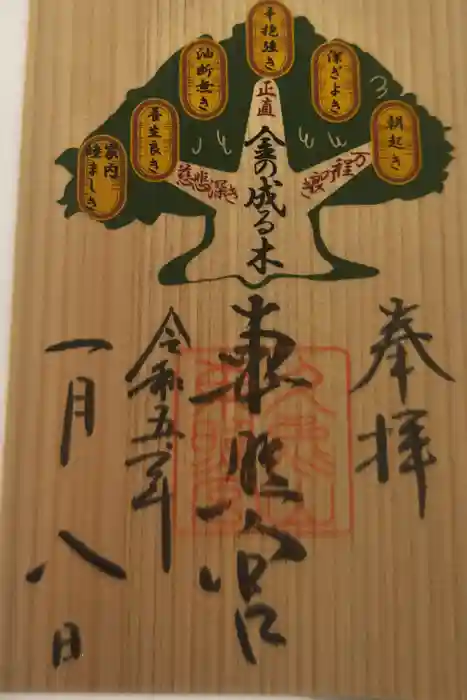 朝起き
潔ぎよき
辛抱強き
油断無き
養生良き
家内
睦ましき
万程の
正直
慈悲深き
金の成る木
奉拝
東照宮
令和五年
一月八日